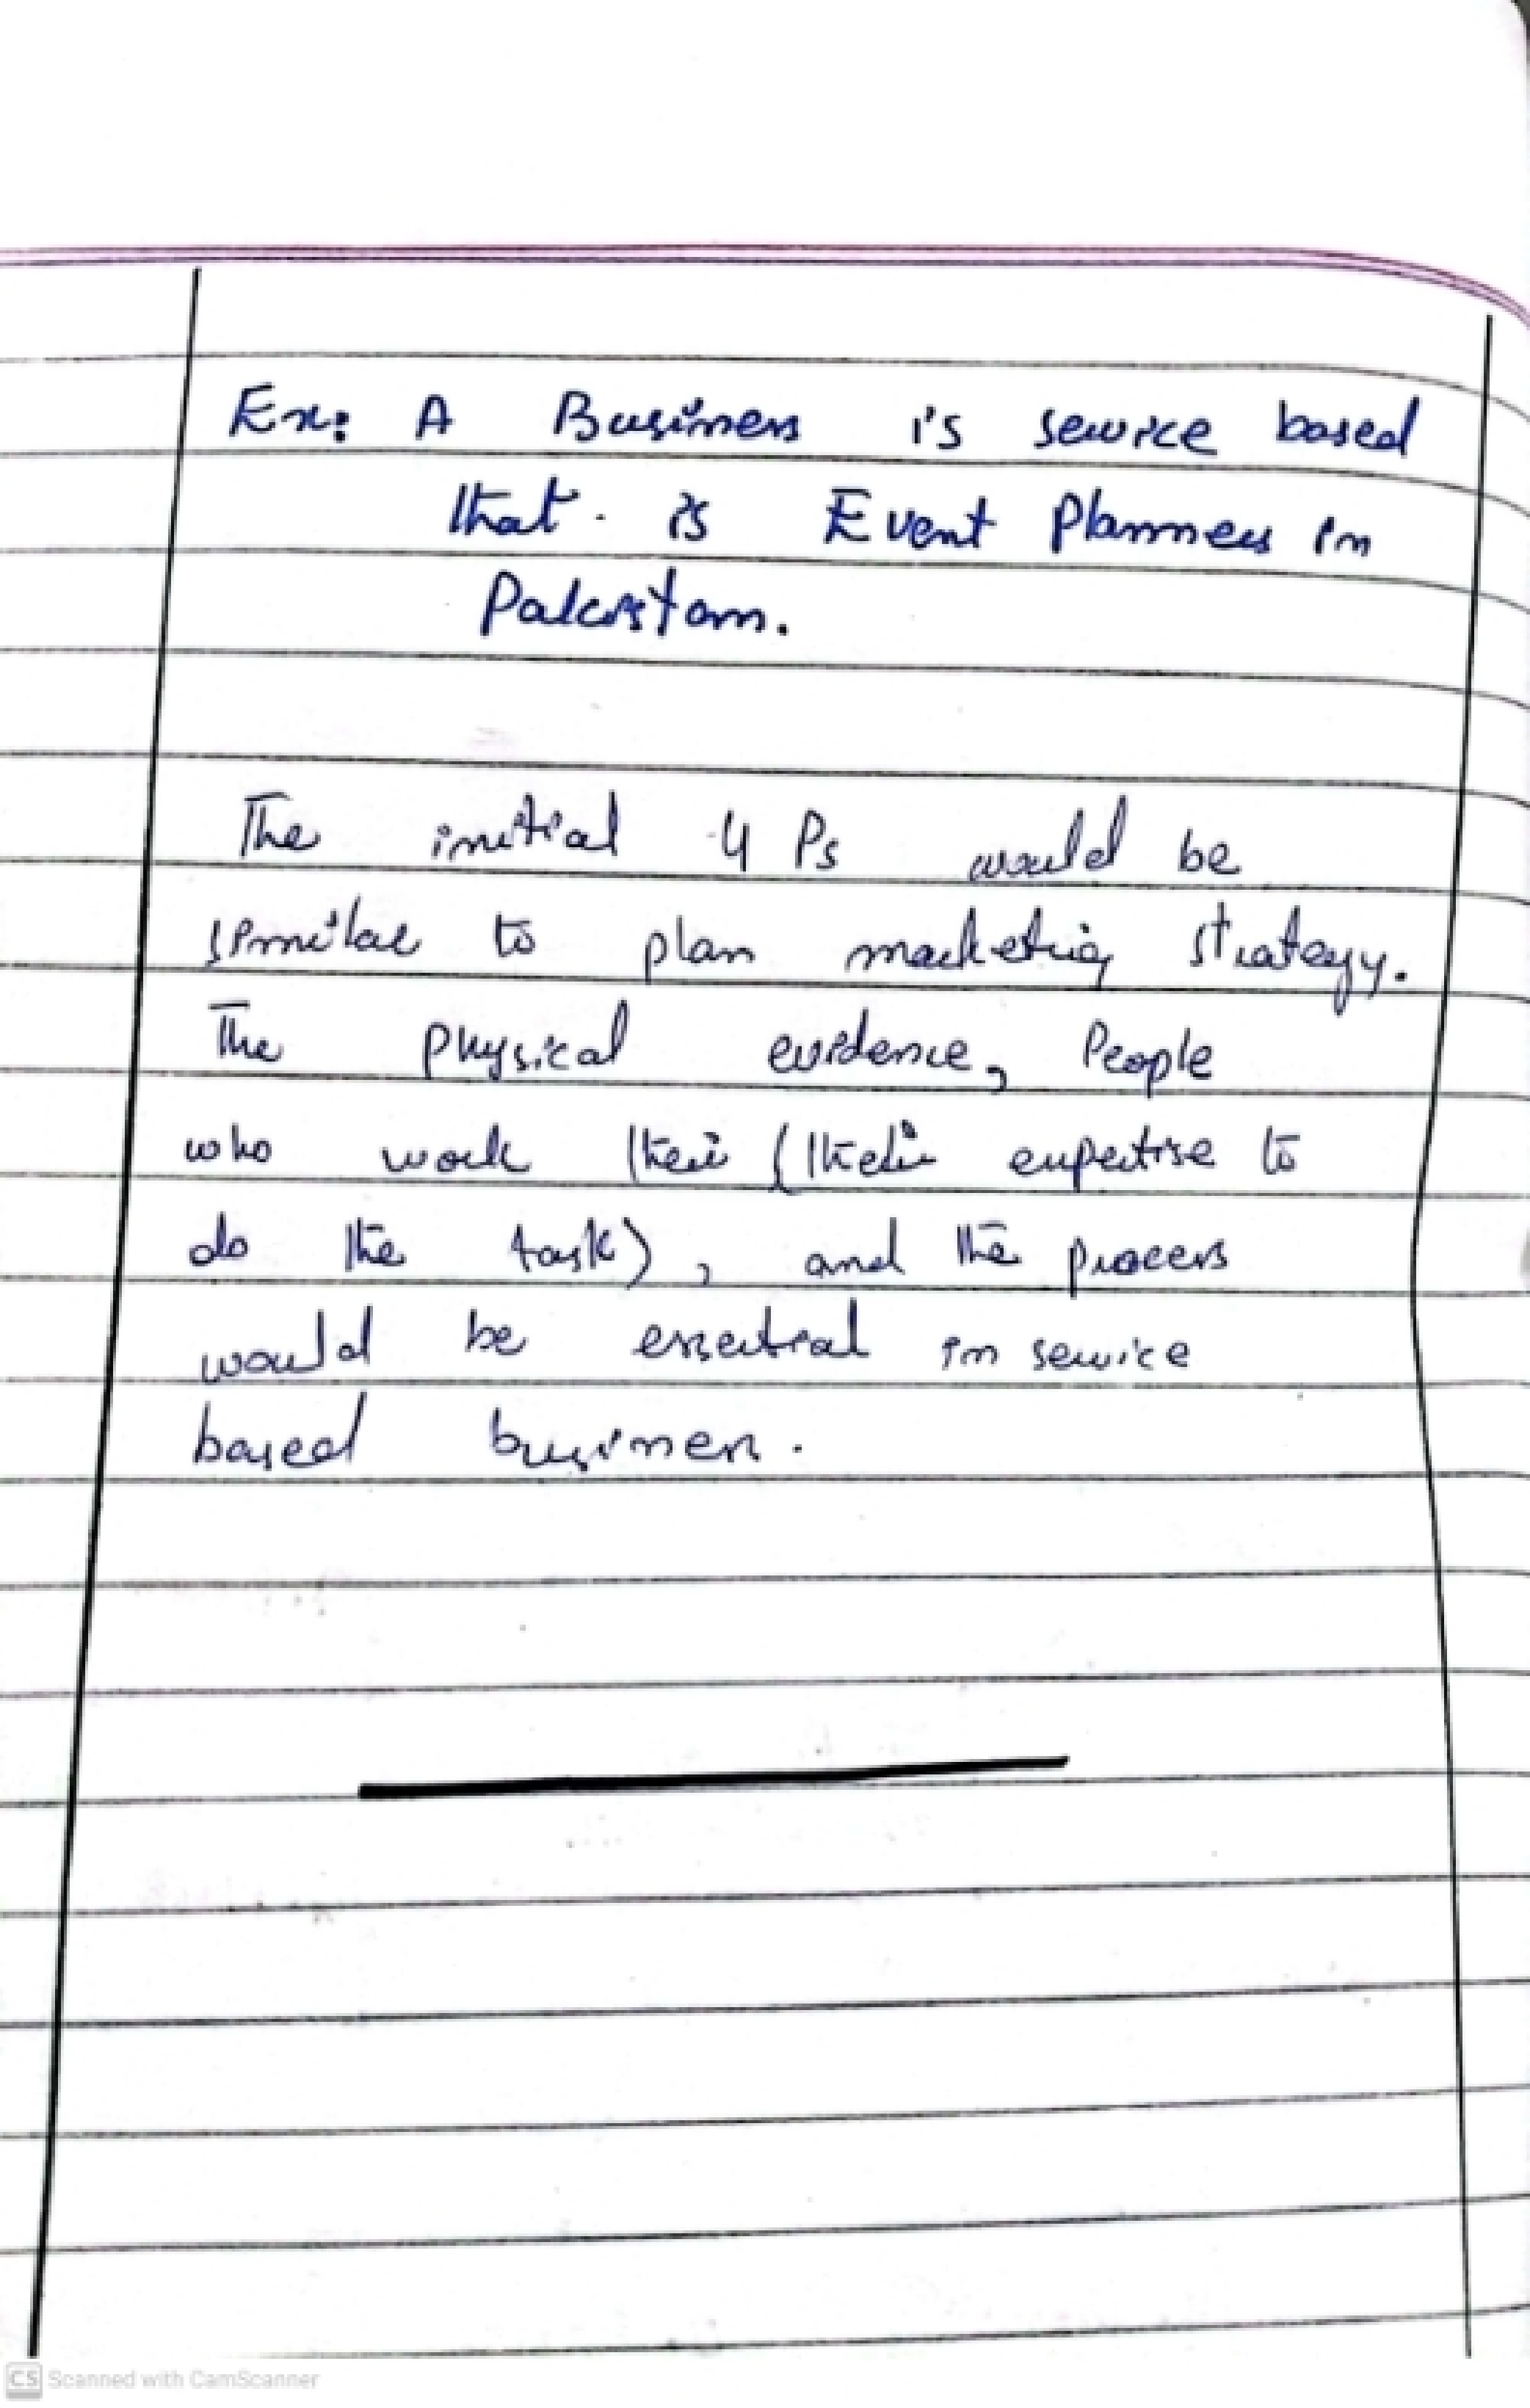 Ex: A Business is service based
that is Event Planners in
Pakistan.
The initial 4 Ps would be
similar to plan marketing strategy.
The physical evidence, People
who work their (their expertise to
do the task), and the process
would be essential in service
based business.
CS Scanned with CamScanner